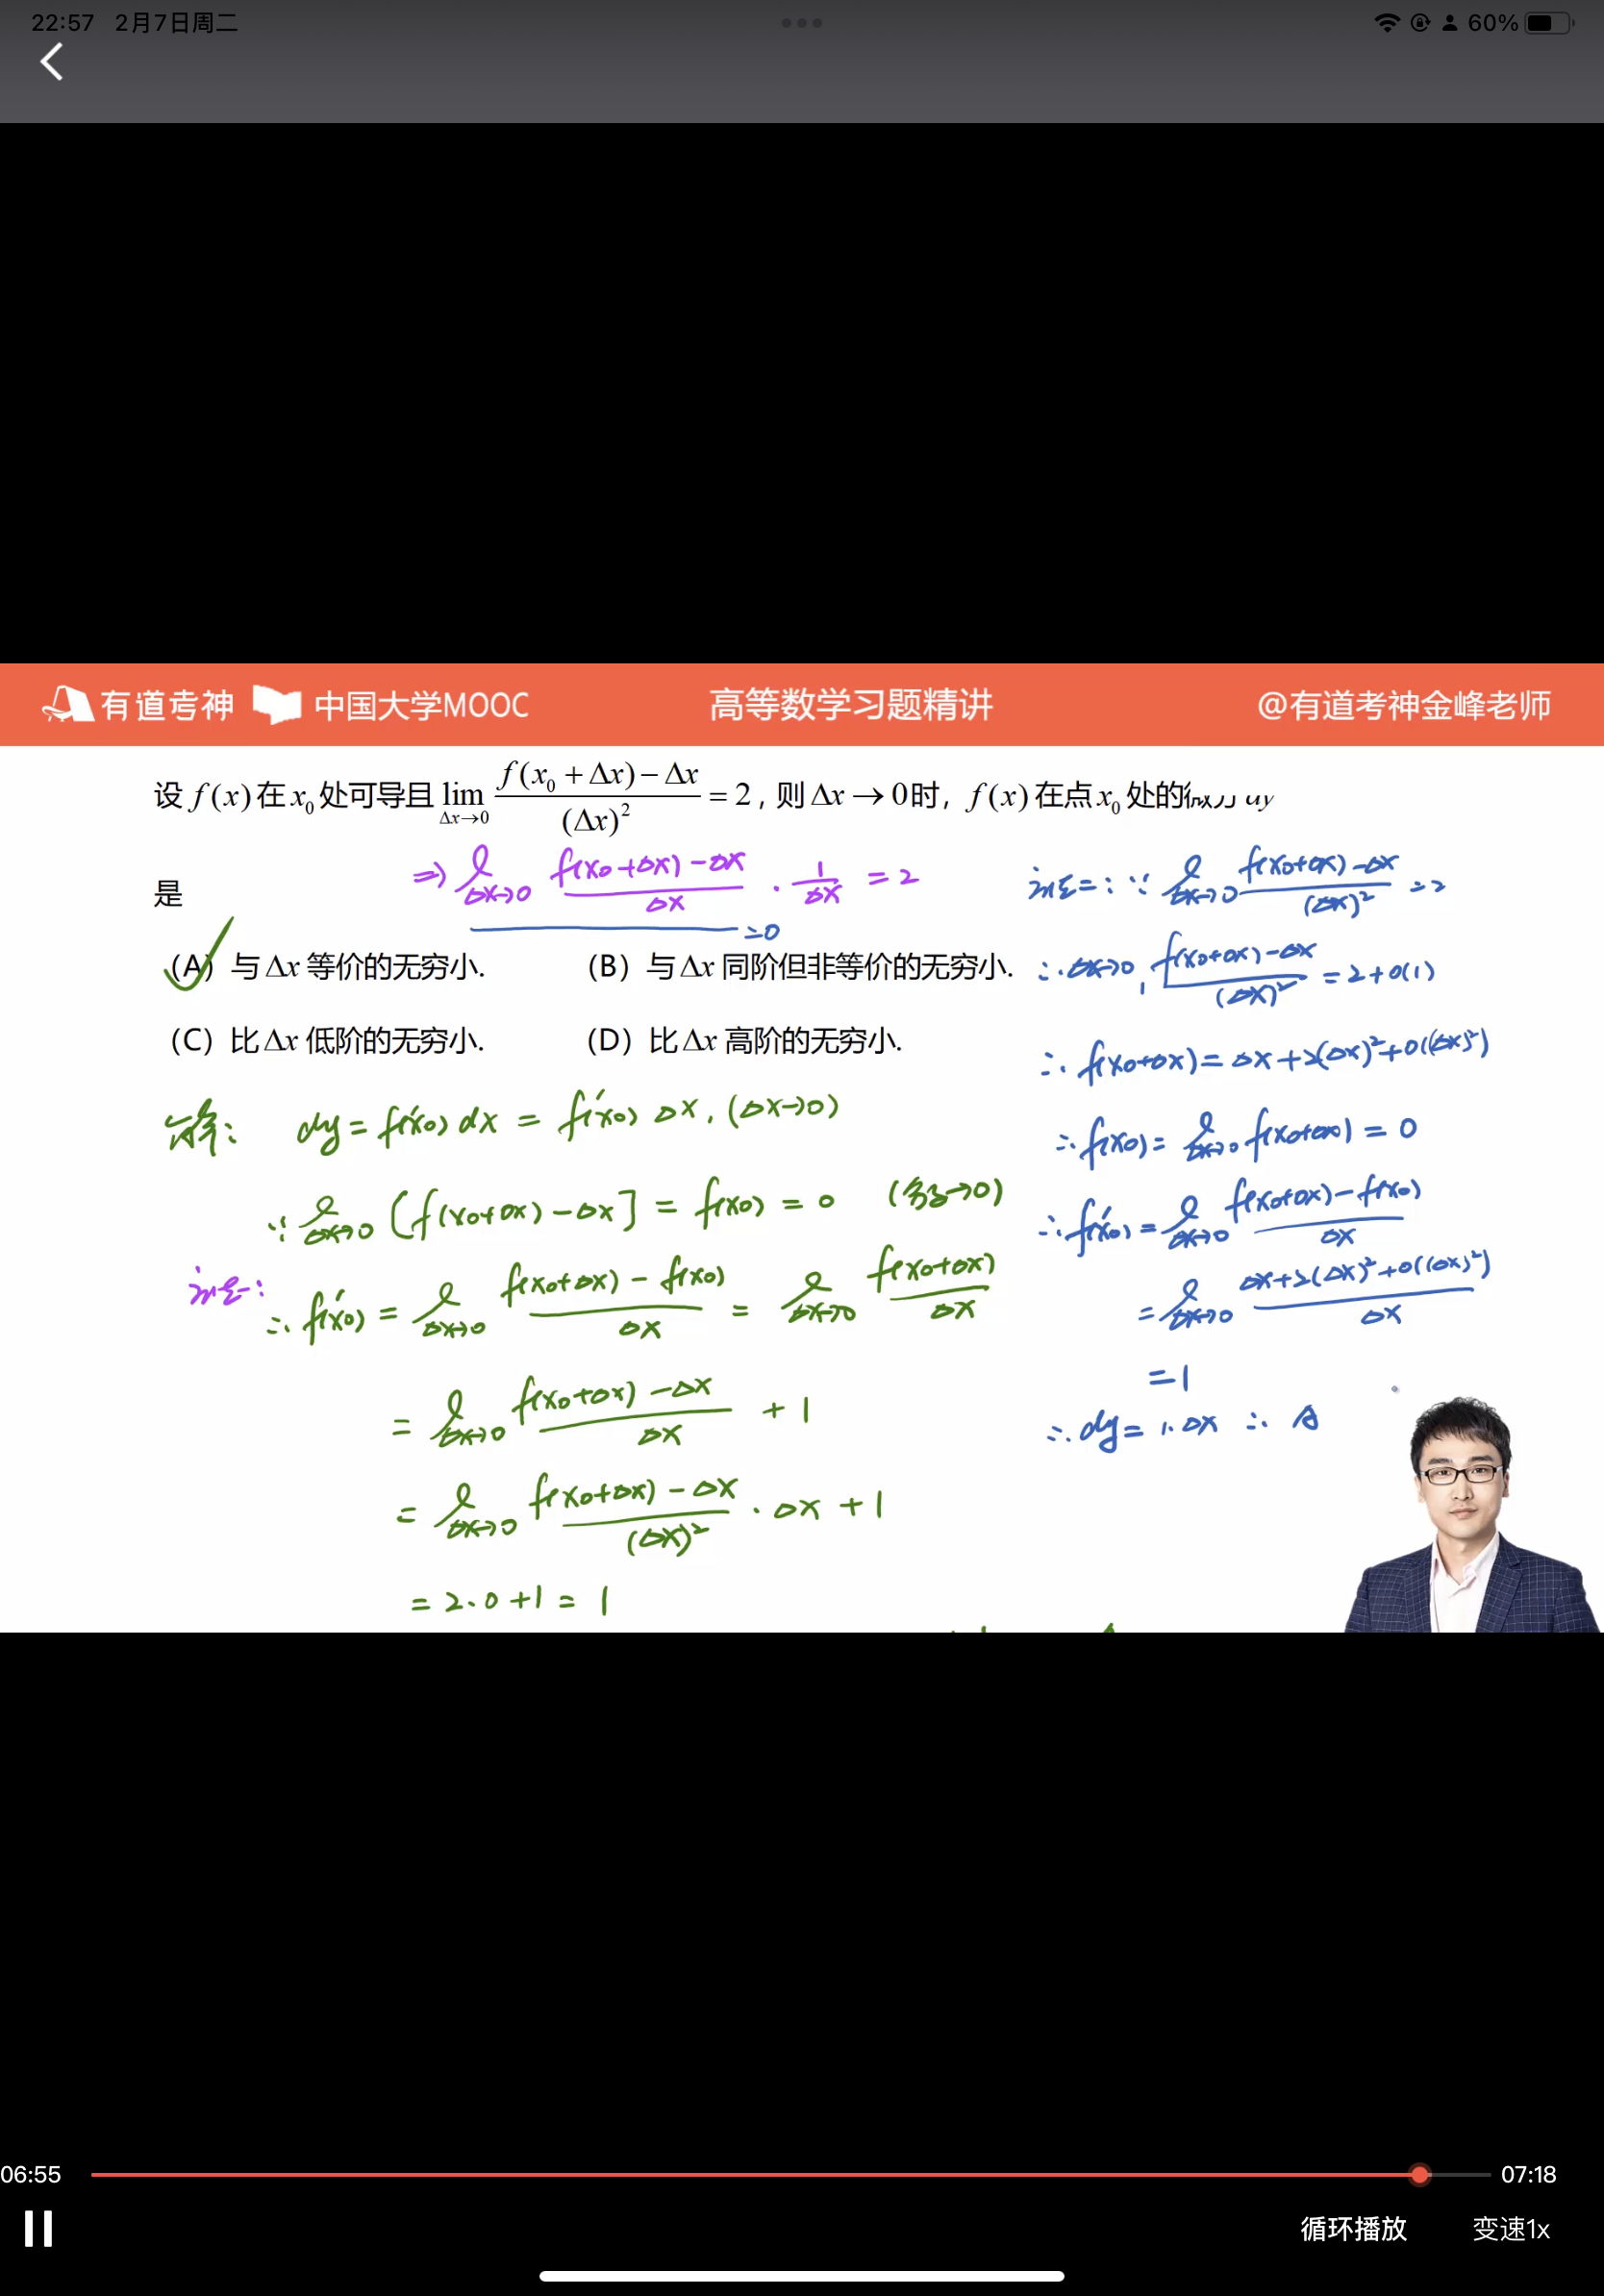 22:57 2月7日周二
60%
有道考神 中国大学MOOC 高等数学习题精讲 @有道考神金峰老师
设 f(x) 在 x₀ 处可导且 lim_{Δx→0} (f(x₀+Δx)−Δx)/(Δx)² = 2, 则 Δx→0时, f(x) 在点 x₀ 处的
是
⇒ lim_{Δx→0} (f(x₀+Δx)−Δx)/Δx · 1/Δx = 2
=0
(A) 与 Δx 等价的无穷小. (B) 与 Δx 同阶但非等价的无穷小.
(C) 比 Δx 低阶的无穷小. (D) 比 Δx 高阶的无穷小.
解: dy = f'(x₀) dx = f'(x₀) Δx, (Δx→0)
∵ lim_{Δx→0} [f(x₀+Δx)−Δx] = f(x₀) = 0 (分子→0)
法一:
∴ f'(x₀) = lim_{Δx→0} (f(x₀+Δx)−f(x₀))/Δx = lim_{Δx→0} f(x₀+Δx)/Δx
= lim_{Δx→0} (f(x₀+Δx)−Δx)/Δx + 1
= lim_{Δx→0} (f(x₀+Δx)−Δx)/(Δx)² · Δx + 1
= 2·0+1 = 1
法二: ∵ lim_{Δx→0} (f(x₀+Δx)−Δx)/(Δx)² = 2
∴ Δx→0, (f(x₀+Δx)−Δx)/(Δx)² = 2+o(1)
∴ f(x₀+Δx) = Δx+2(Δx)²+o((Δx)²)
∴ f(x₀) = lim_{Δx→0} f(x₀+Δx) = 0
∴ f'(x₀) = lim_{Δx→0} (f(x₀+Δx)−f(x₀))/Δx
= lim_{Δx→0} (Δx+2(Δx)²+o((Δx)²))/Δx
= 1
∴ dy = 1·Δx ∴ A
06:55 07:18
循环播放 变速1x